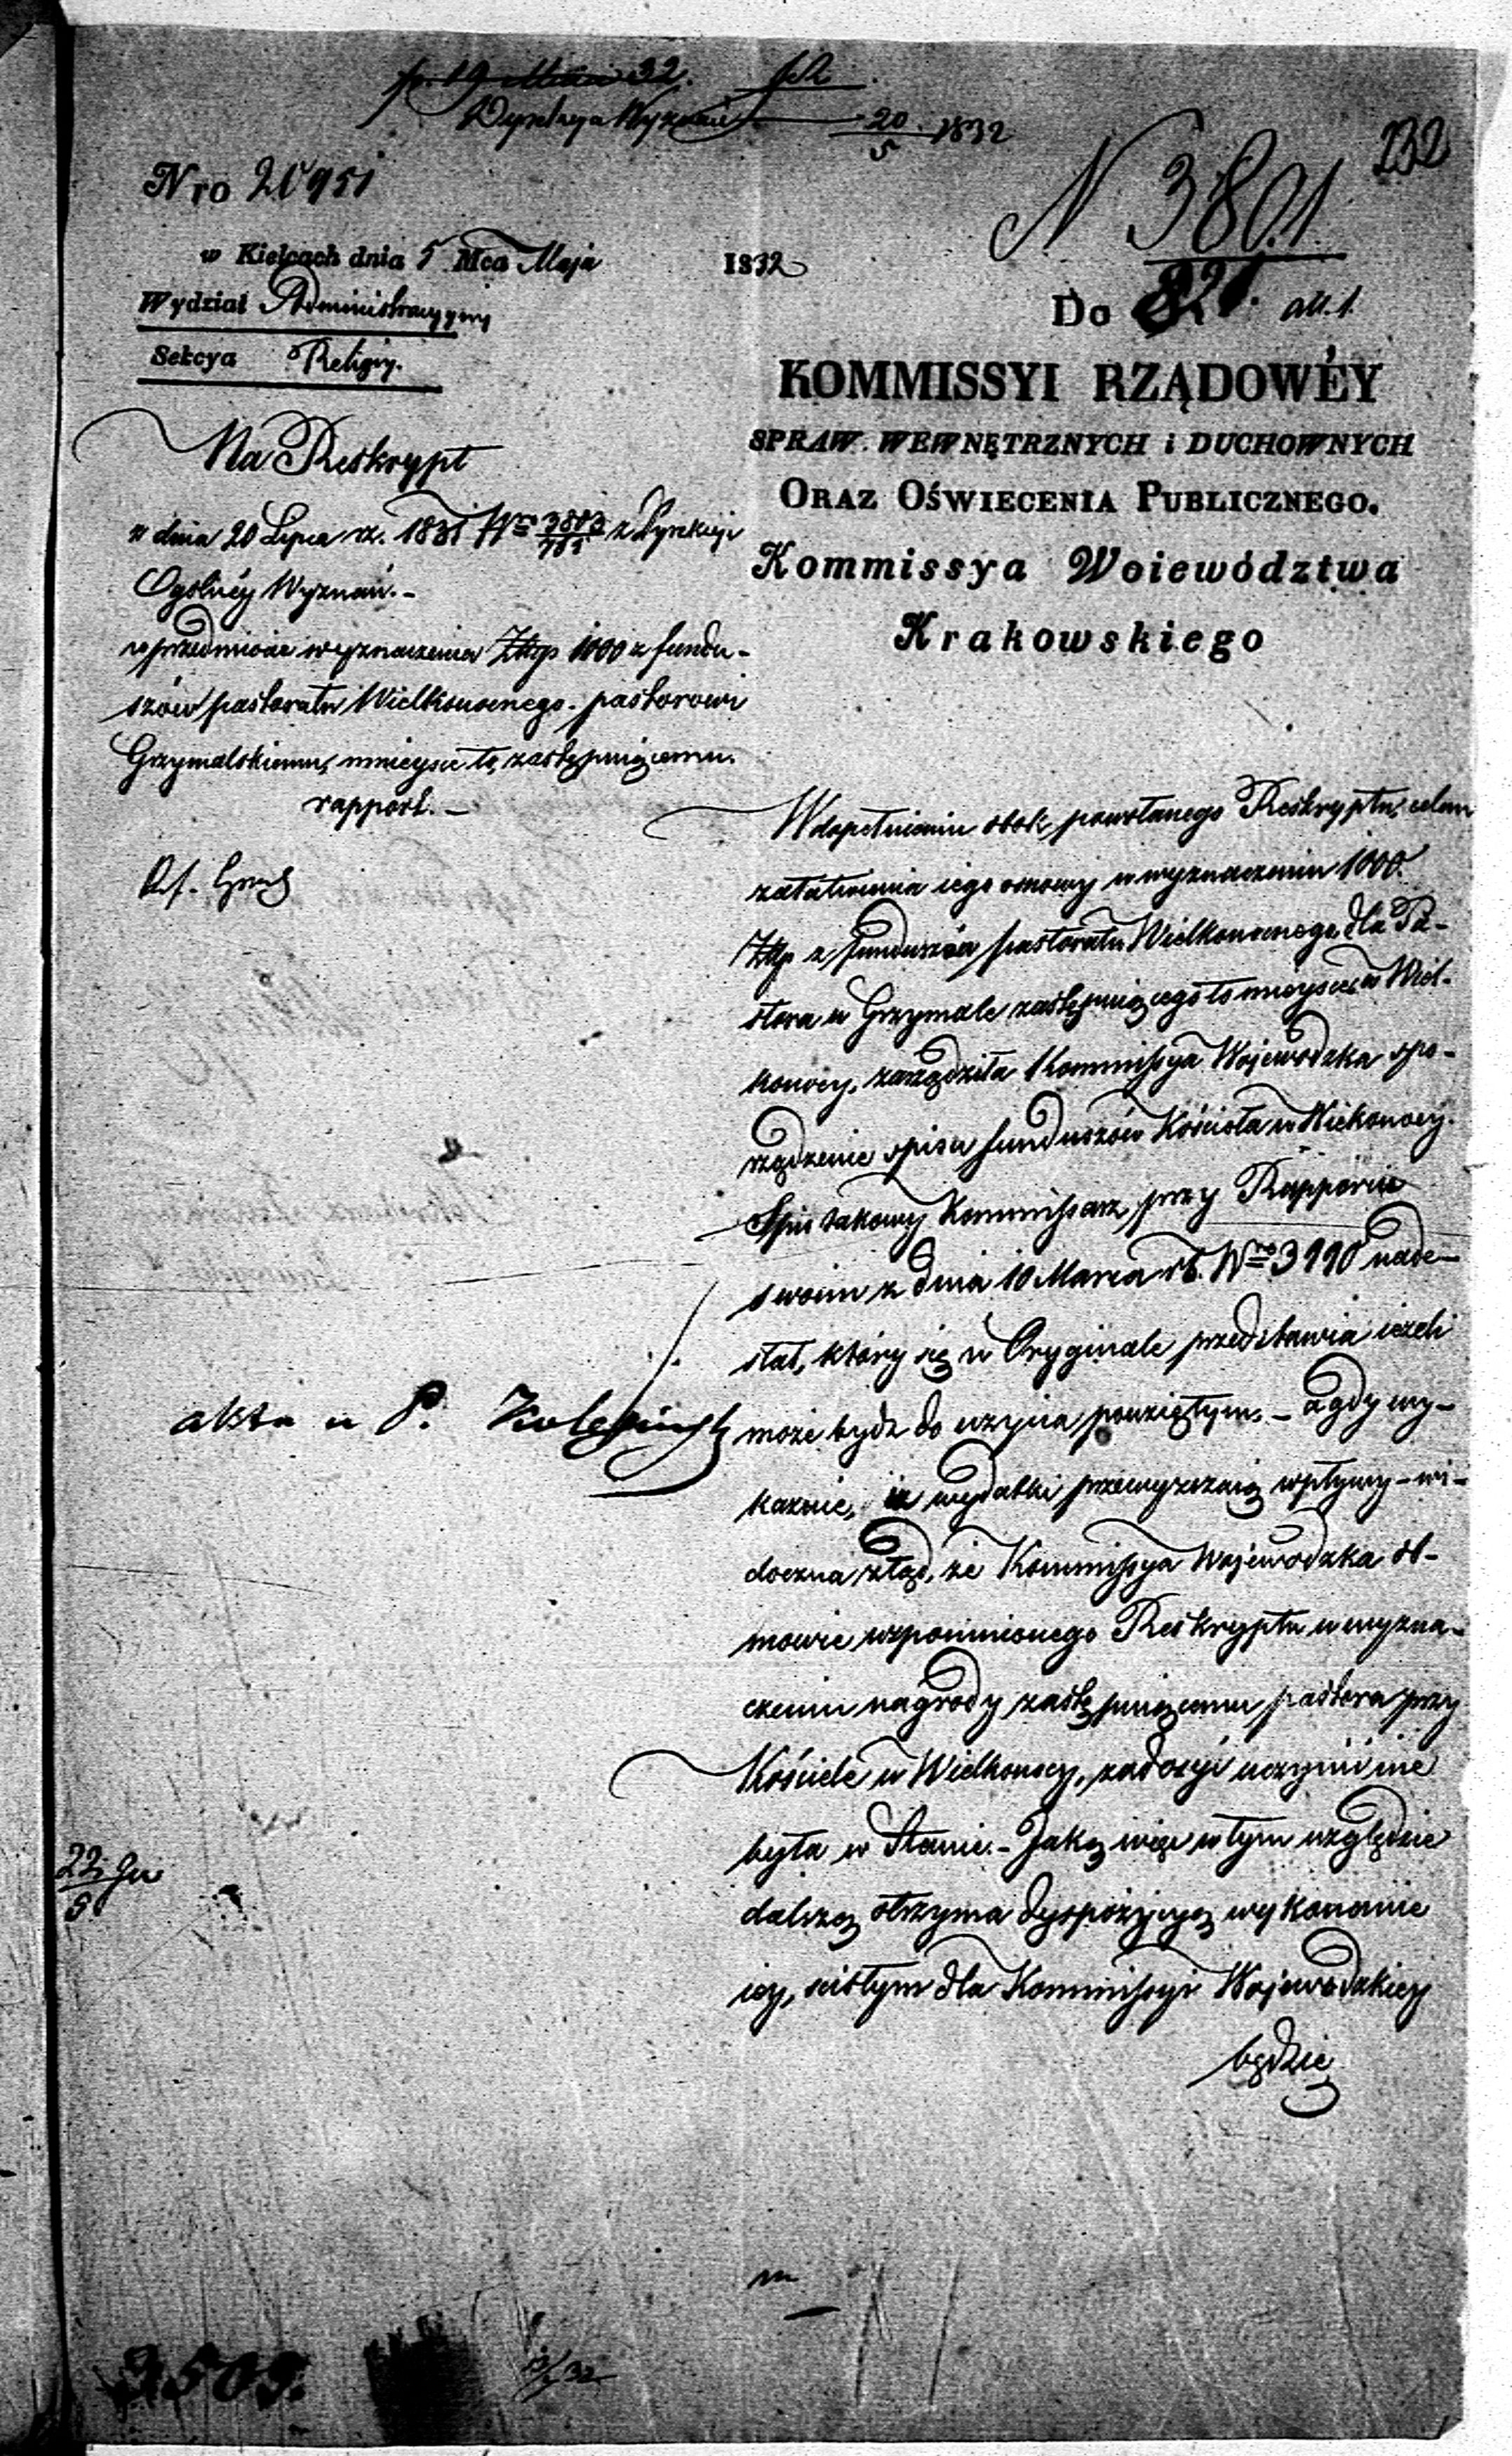 Dyrekcya Wyznań 20/5 1832
232
Nro 20951
N 3801
w Kielcach dnia 5 Mca Maja 1832
Wydział Administracyyny
Sekcya Religiy.
Do 821. all. 1.
KOMMISSYI RZĄDOWÉY
SPRAW. WEWNĘTRZNYCH i DUCHOWNYCH
ORAZ OŚWIECENIA PUBLICZNEGO.
Kommissya Woiewództwa
Krakowskiego
Na Reskrypt
z dnia 20 Lipca r. 1831 Nro 3803/781 z Dyrekcyi
Ogólnéy Wyznań.-
w przedmiocie wyznaczenia Złtp 1000 z fundu-
szów pastoratu Wielkonocnego. pastorowi
Grzymalskiemu, mieysce to, zastępuiącemu.
rapport.-
W dopełnieniu obok powołanego Reskryptu, celem
załatwienia iego osnowy w wyznaczeniu 1000.
Złtp z funduszów pastoratu Wielkonocnego dla Pa-
stora w Grzymale zastępuiącego to mieysce w Wiel-
konocy, zarządziła Kommissya Wojewodzka spo-
rządzenie spisu funduszów Kościoła w Wielkonocy.
Spis takowy Kommissarz, przy Rapporcie
swoim z dnia 10 Marca rb. Nro 3990 nade-
słał, który się w Oryginale przedstawia ieżeli
może bydź do użycia powziętym.- a gdy wy-
każe, iż wydatki przewyższaią wpływy - wi-
doczna ztąd, że Kommissya Wojewodzka os-
nowie wspomnionego Reskryptu w wyzna-
czeniu nagrody zastępuiącemu pastora przy
Kościele w Wielkonocy, zadosyć uczynić nie
była w Stanie.- Jaką więc w tym względzie
dalszą otrzyma dyspozycyą wykonanie
iey, ścisłym dla Kommissyi Wojewodzkiey
będzie
akta u P.
22/5
3505.